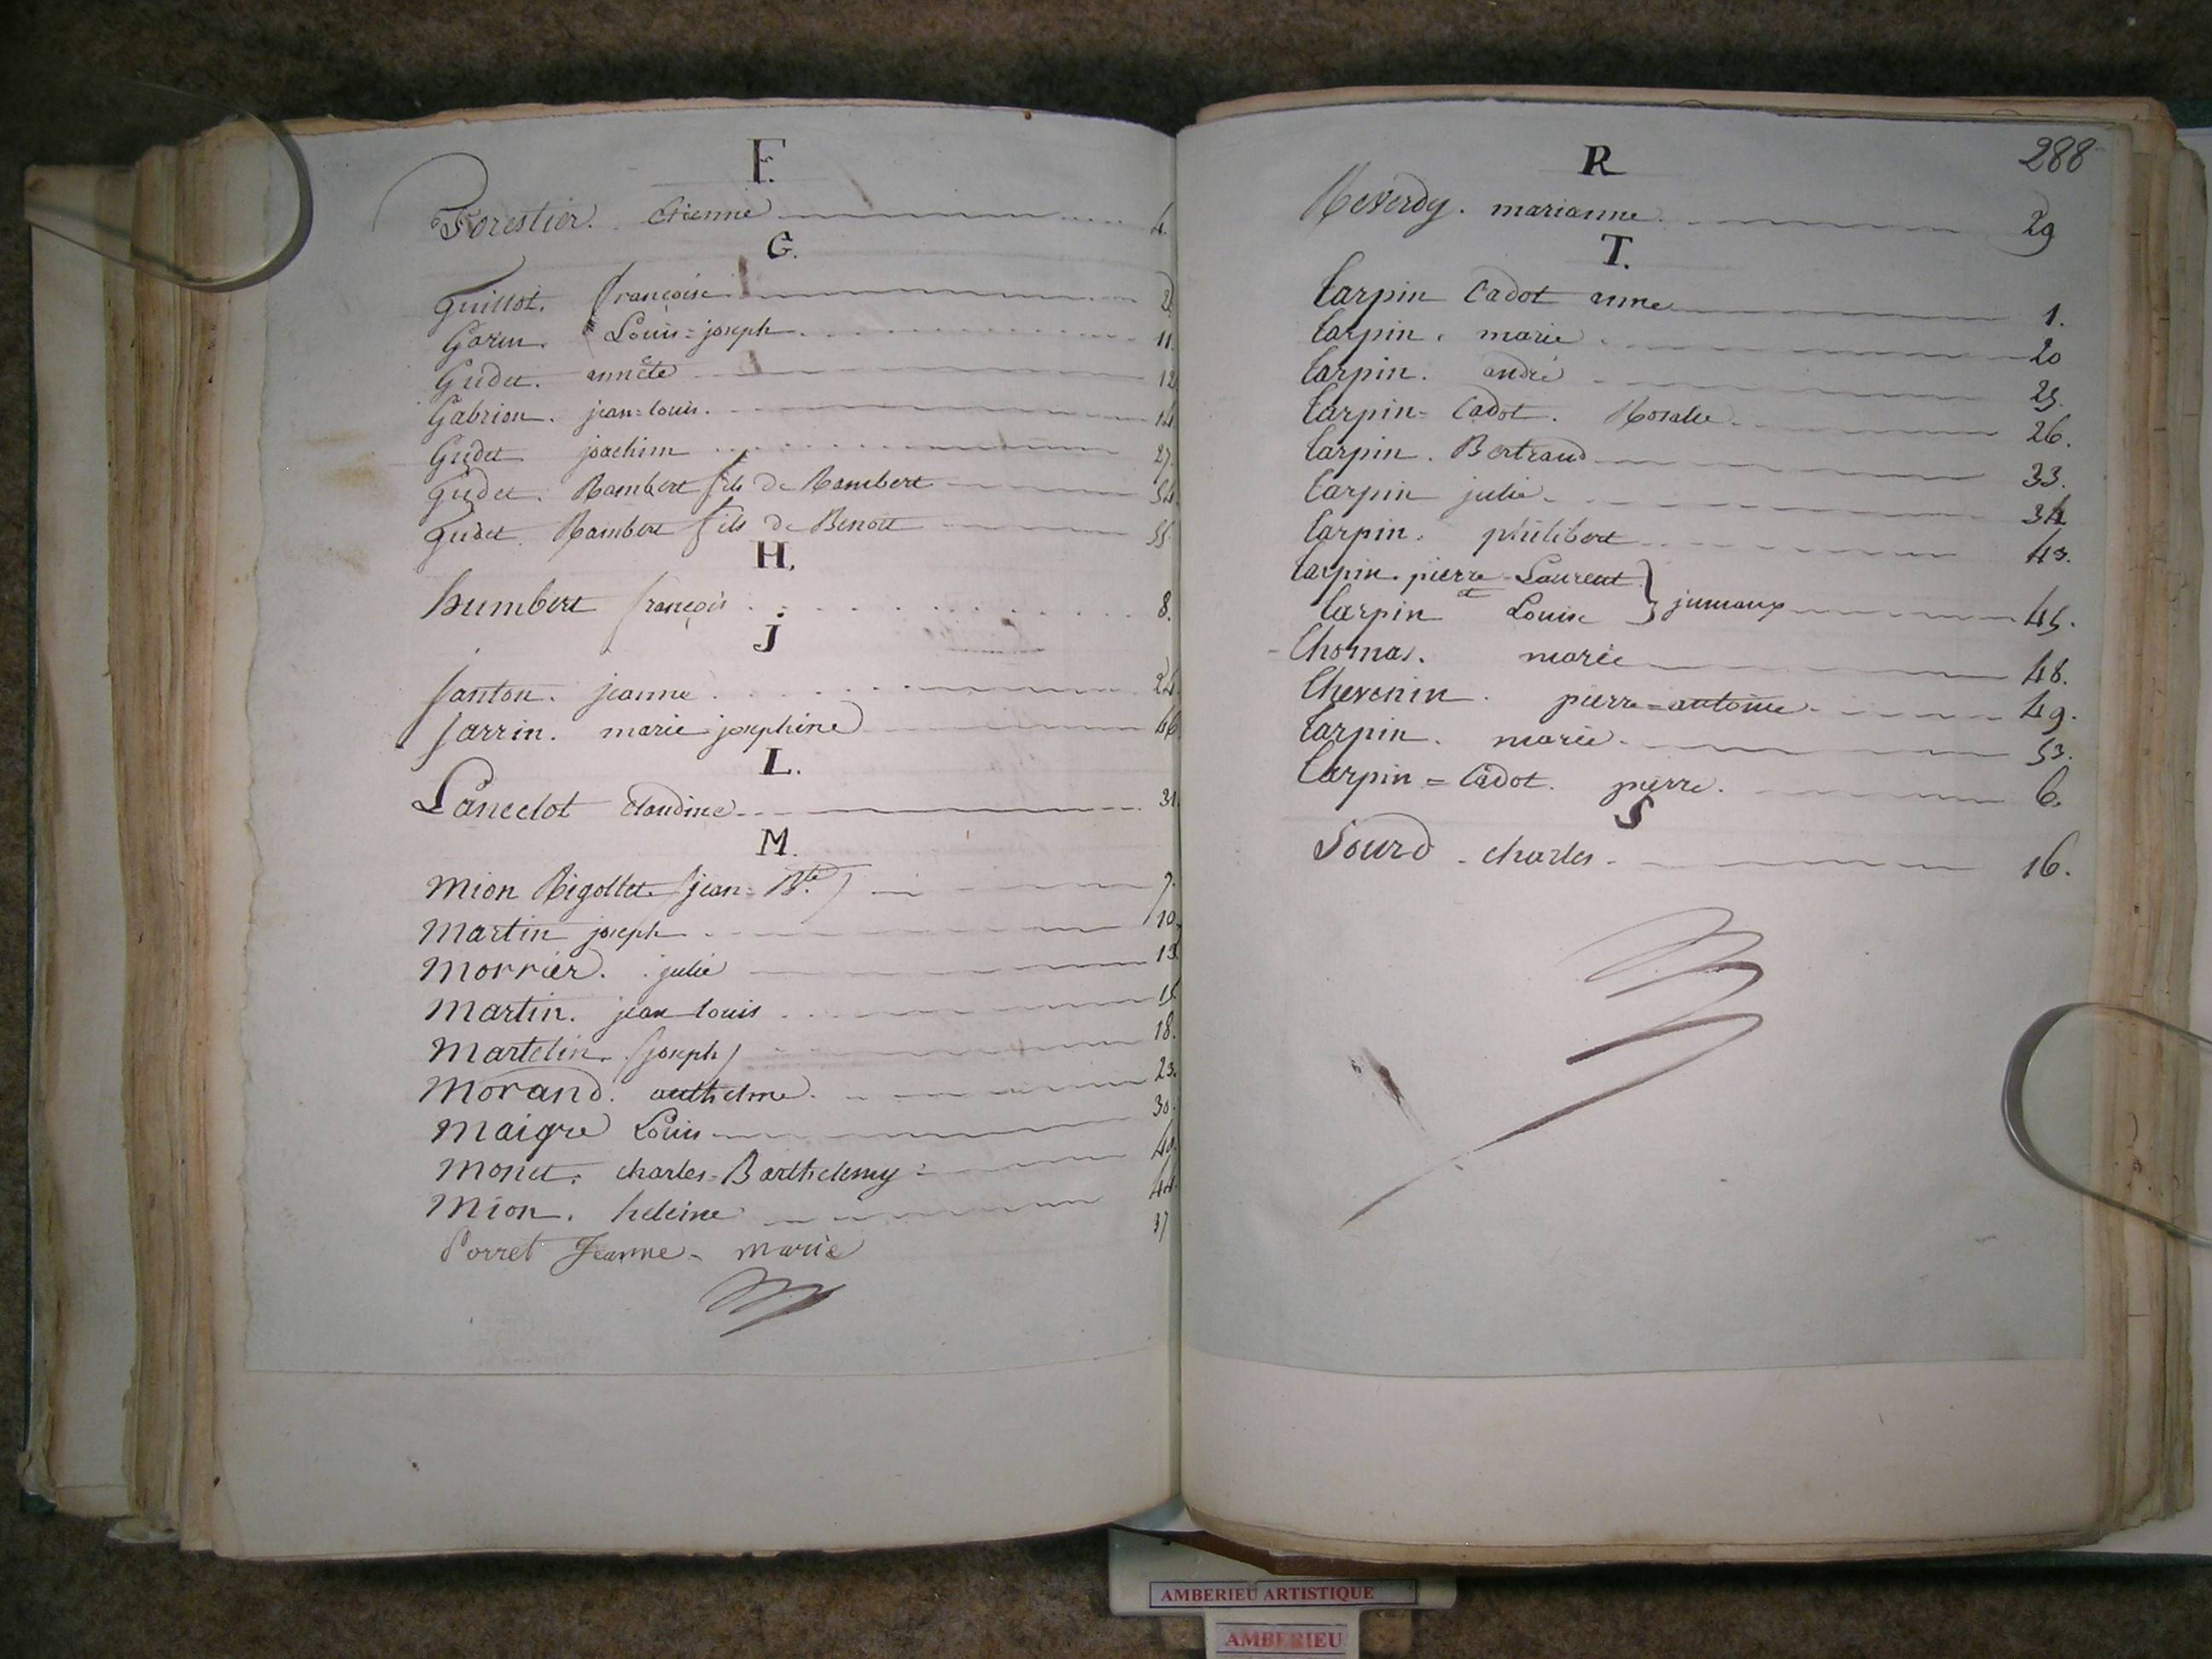 F.
Forestier. Etienne 4.
G.
Guillot. françoise 2.
Garin. Louis=joseph 11.
Gudet. annéte 12
Gabrion. jean=louis. 14
Gudet joachim 27.
Gudet. Rambert fils de Rambert 54
Gudet. Rambert fils de Benoit 55.
H.
humbert françois 8.
J
Janton. jeanne 24.
Jarrin. marie josephine 46
L.
Lancelot claudine 31.
M.
Mion Rigollet (jean=Bte) 7.
Martin joseph 10
Morrier. julie 13
Martin. jean louis 15
Martelin. (joseph) 18.
Morand. anthelme 23.
Maigre Louis 30.
Monet. charles=Barthelemy 40.
Mion. heleine 44.
Porret Jeanne-marie 37
288
R
Reverdy. marianne 29
T.
Tarpin Cadot anne 1.
Tarpin. marie 20
Tarpin. andré 25.
Tarpin=Cadot. Rosalie 26.
Tarpin. Bertrand 33.
Tarpin julie 34
Tarpin. philibert 43.
Tarpin. pierre=Laurent
et
Tarpin Louise } jumeaux 45.
Thomas. marie 48.
Thevenin. pierre=antoine 49.
Tarpin. marie 53.
Tarpin=Cadot. pierre. 6.
S
Sourd - charles 16.
AMBERIEU ARTISTIQUE
AMBERIEU